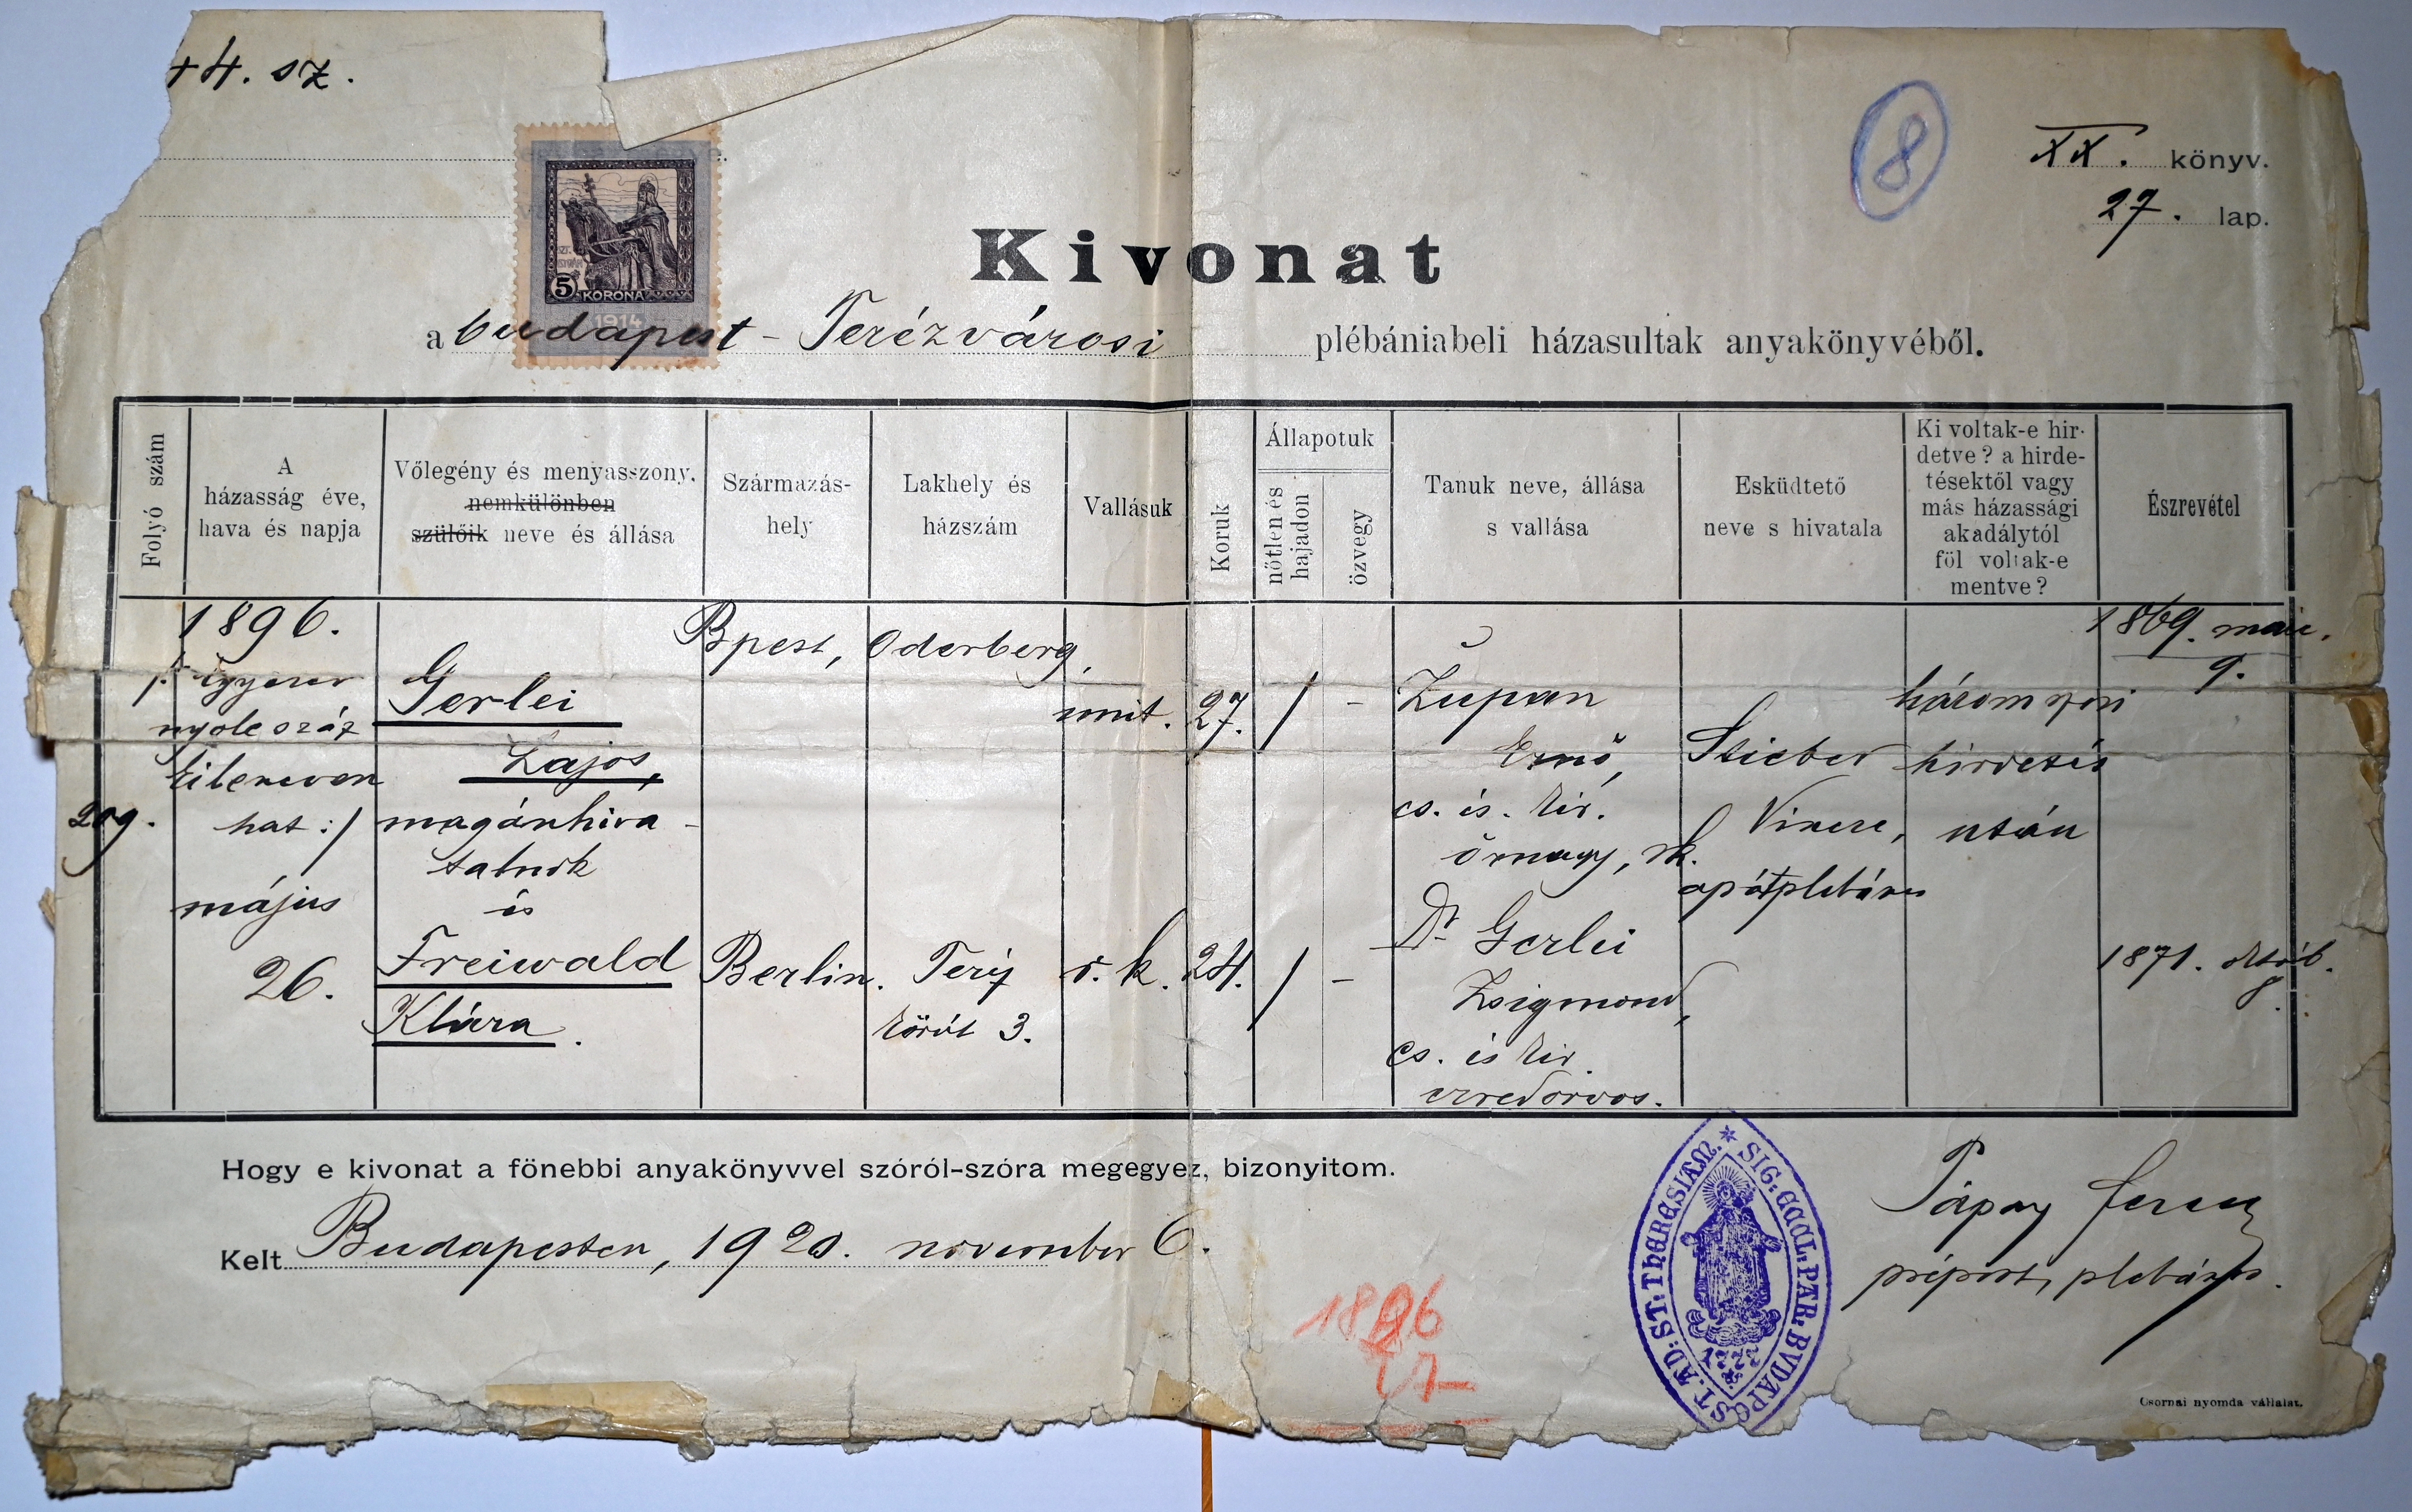 +4. sz.
XX. könyv.
27. lap.
8
SZT. ISTVÁN
5 KORONA
1914
Kivonat
a budapest - Terézvárosi plébániabeli házasultak anyakönyvéből.
Folyó szám
A házasság éve, hava és napja
Vőlegény és menyasszony,
nemkülönben
szülőik neve és állása
Származás-
hely
Lakhely és
házszám
Vallásuk
Koruk
Állapotuk
nőtlen és
hajadon
özvegy
Tanuk neve, állása
s vallása
Esküdtető
neve s hivatala
Ki voltak-e hir-
detve? a hirde-
tésektől vagy
más házassági
akadálytól
föl voltak-e
mentve?
Észrevétel
209.
1896.
/: egyezer
nyolcszáz
kilencven
hat :/
május
26.
Gerlei
Lajos,
magánhiva-
talnok
és
Freiwald
Klára.
Bpest,
Berlin.
Oderberg,
Teréz
körút 3.
unit.
r. k.
27.
24.
/ -
/ -
Zupan
Ernő,
cs. és. kir.
őrnagy, rk.
Dr Gerlei
Zsigmond,
cs. és kir.
ezredorvos.
Stieber
Vince,
apátplébános
háromszori
hirdetés
után
1869. máj.
9.
1871. októb.
8.
Hogy e kivonat a fönebbi anyakönyvvel szóról-szóra megegyez, bizonyitom.
Kelt Budapesten, 1920. november 6.
SIG: ECCL: PAR: BVDAPEST. AD: ST: THERESIAM.
1777
Pápay Ferenc
prépost, plébános.
1896
Csornai nyomda vállalat.